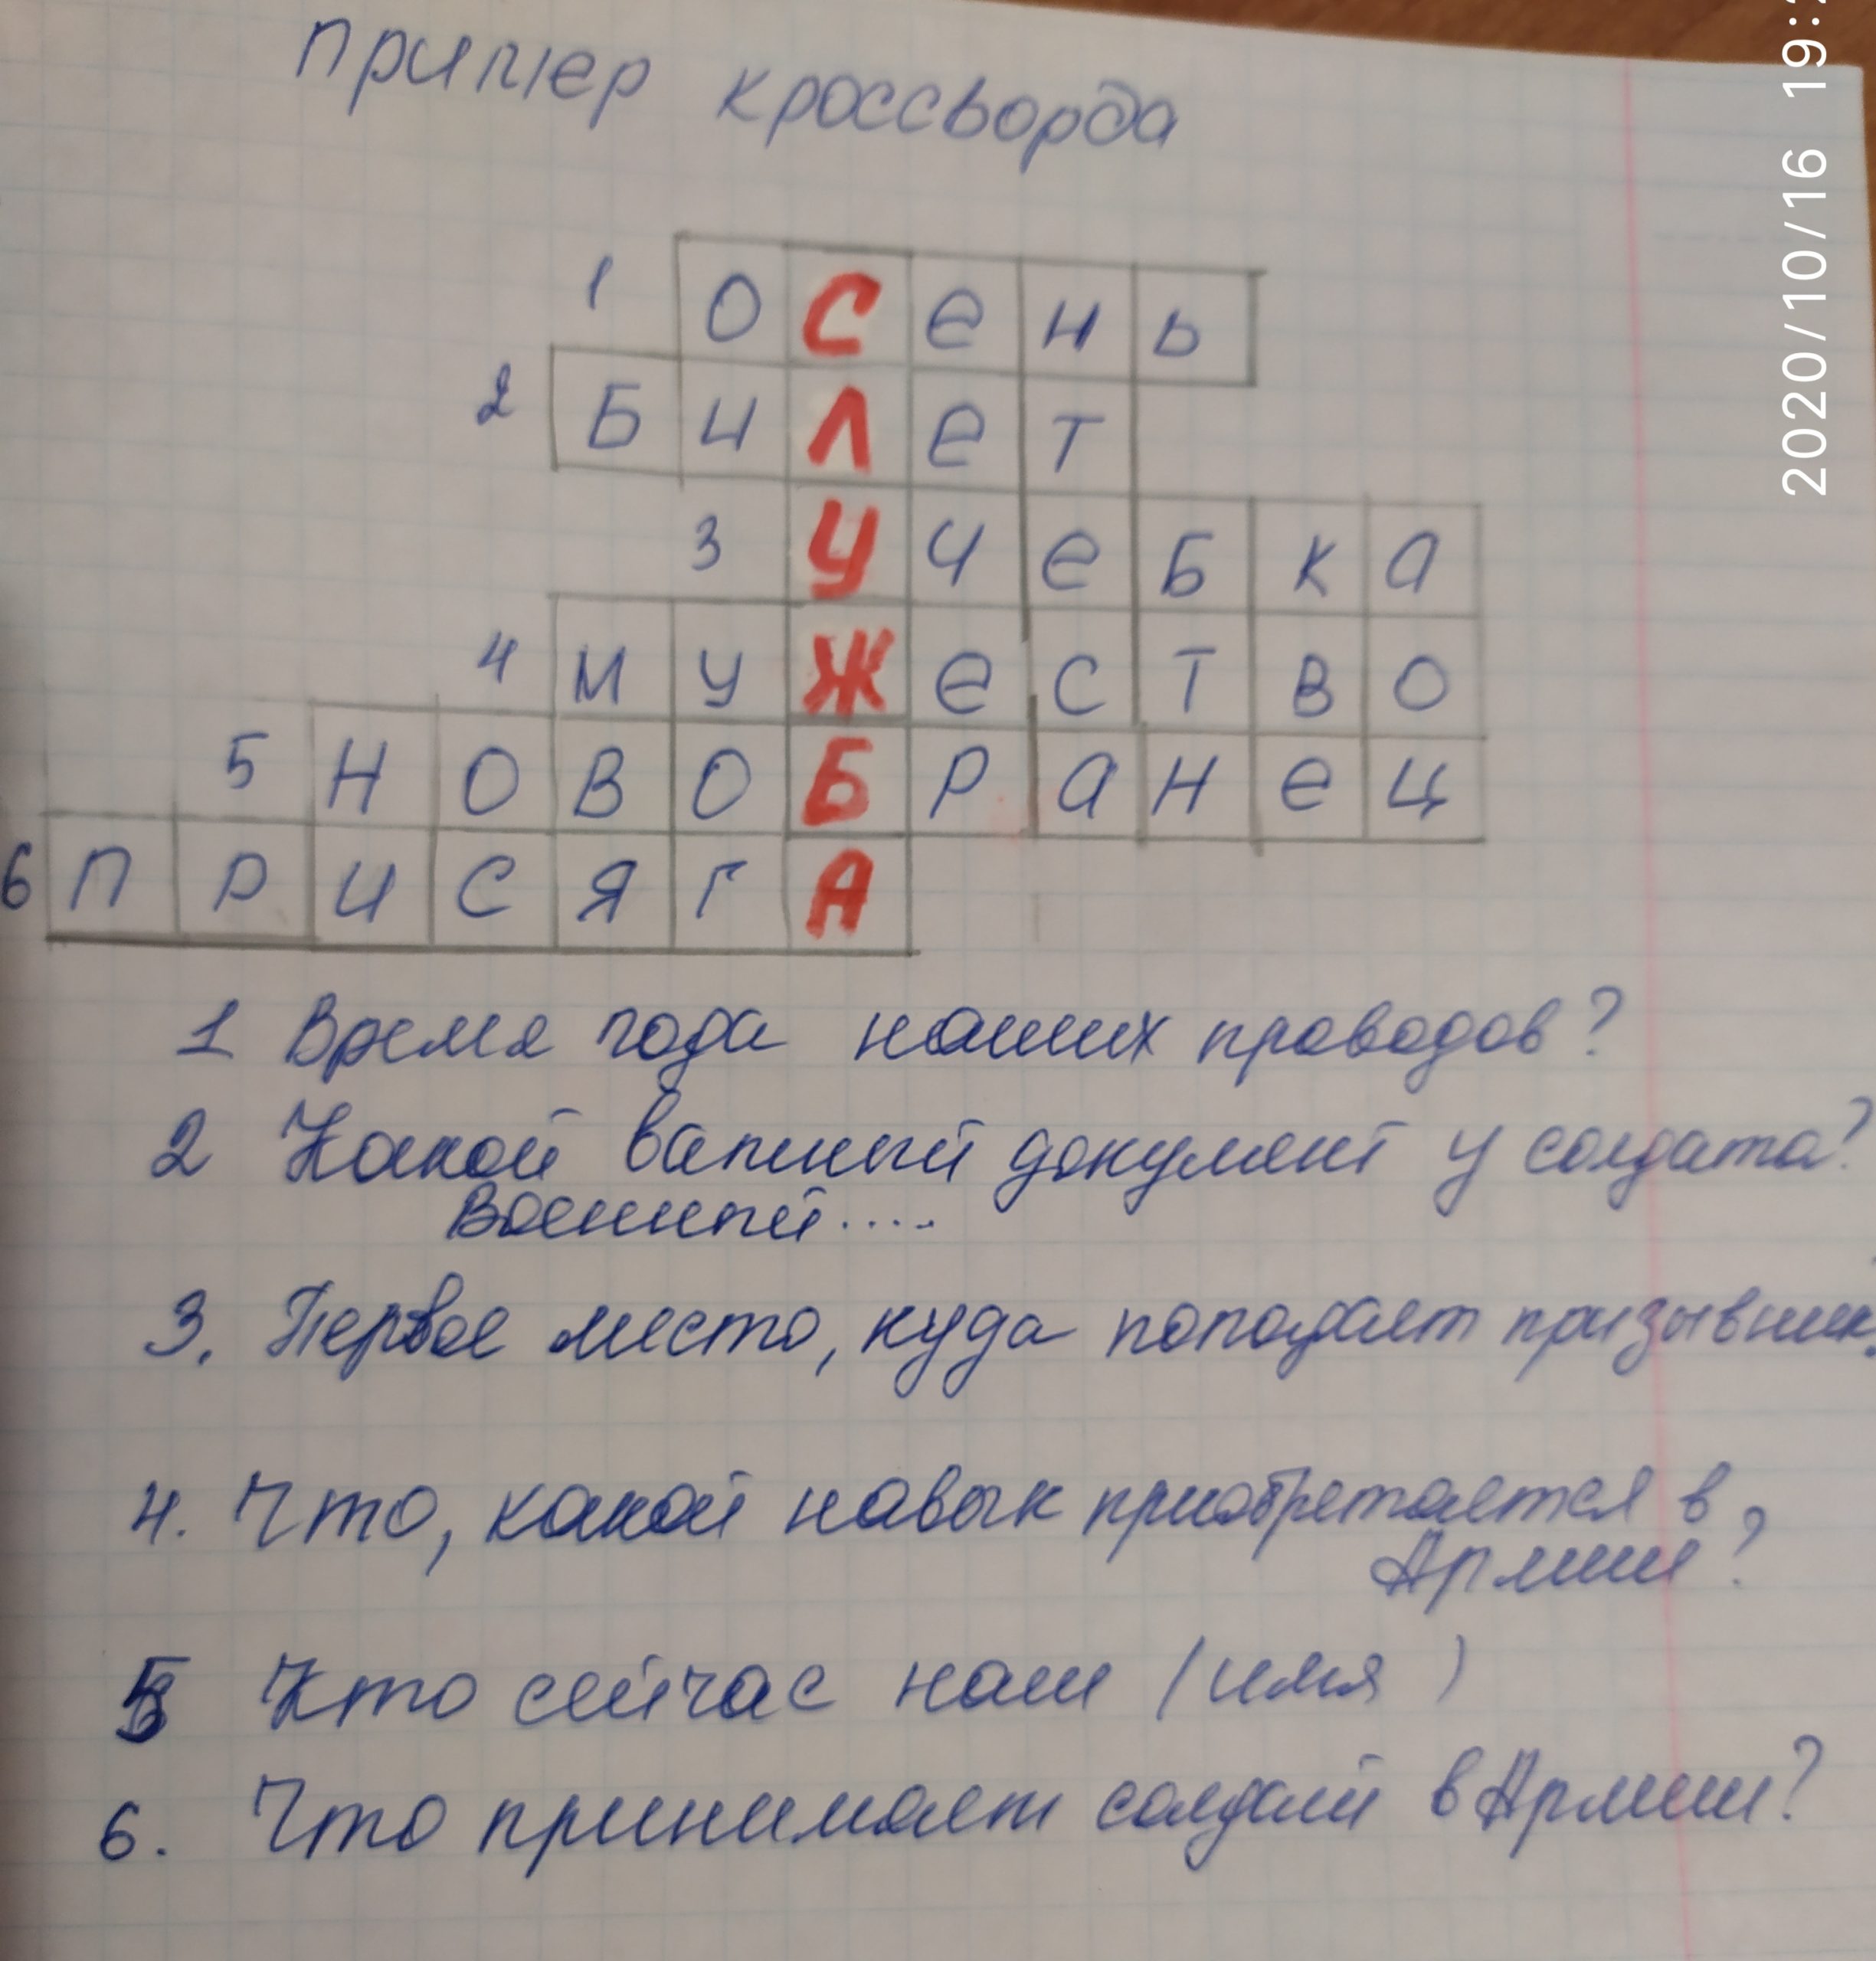 Пример кроссворда
2020/10/16 19:
1 ОСень
2 БиЛет
3 Учебка
4 муЖество
5 НовоБранец
6 присягА
1 Время года наших проводов?
2 Какой важный документ у солдата?
Военный....
3. Первое место, куда попадает призывник.
4. Что, какой навык приобретается в
Армии?
5 Кто сейчас наш (имя)
6. Что принимает солдат в Армии?